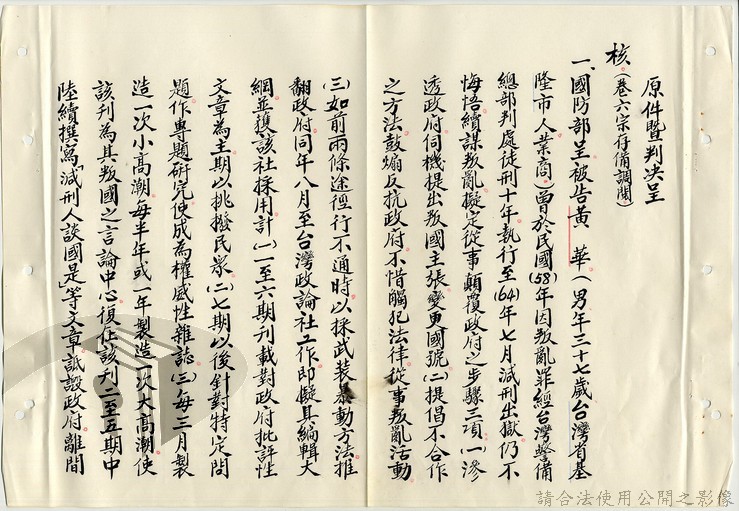 原件暨判決呈
核。(卷六宗存備調閱)
一、國防部呈被告黃　華(男年三十七歲台灣省基
隆市人業商)曾於民國(58)年因叛亂罪經台灣警備
總部判處徒刑十年執行至(64)年七月減刑出獄仍不
悔悟續謀叛亂擬定從事顛覆政府之步驟三項(一)滲
透政府伺機提出叛國主張變更國號(二)提倡不合作
之方法鼓煽反抗政府不惜觸犯法律從事叛亂活動
(三)如前兩條途徑行不通時以採武裝暴動方法推
翻政府同年八月至台灣政論社工作即擬具編輯大
綱並獲該社採用計(一)一至六期刊載對政府批評性
文章為主期以挑撥民眾(二)七期以後針對特定問
題作專題研究使成為權威性雜誌(三)每三月製
造一次小高潮每半年或一年製造一次大高潮使
該刊為其叛國之言論中心復在該刊二至五期中
陸續撰寫「減刑人談國是等文章詆譭政府離間
請合法使用公開之影像